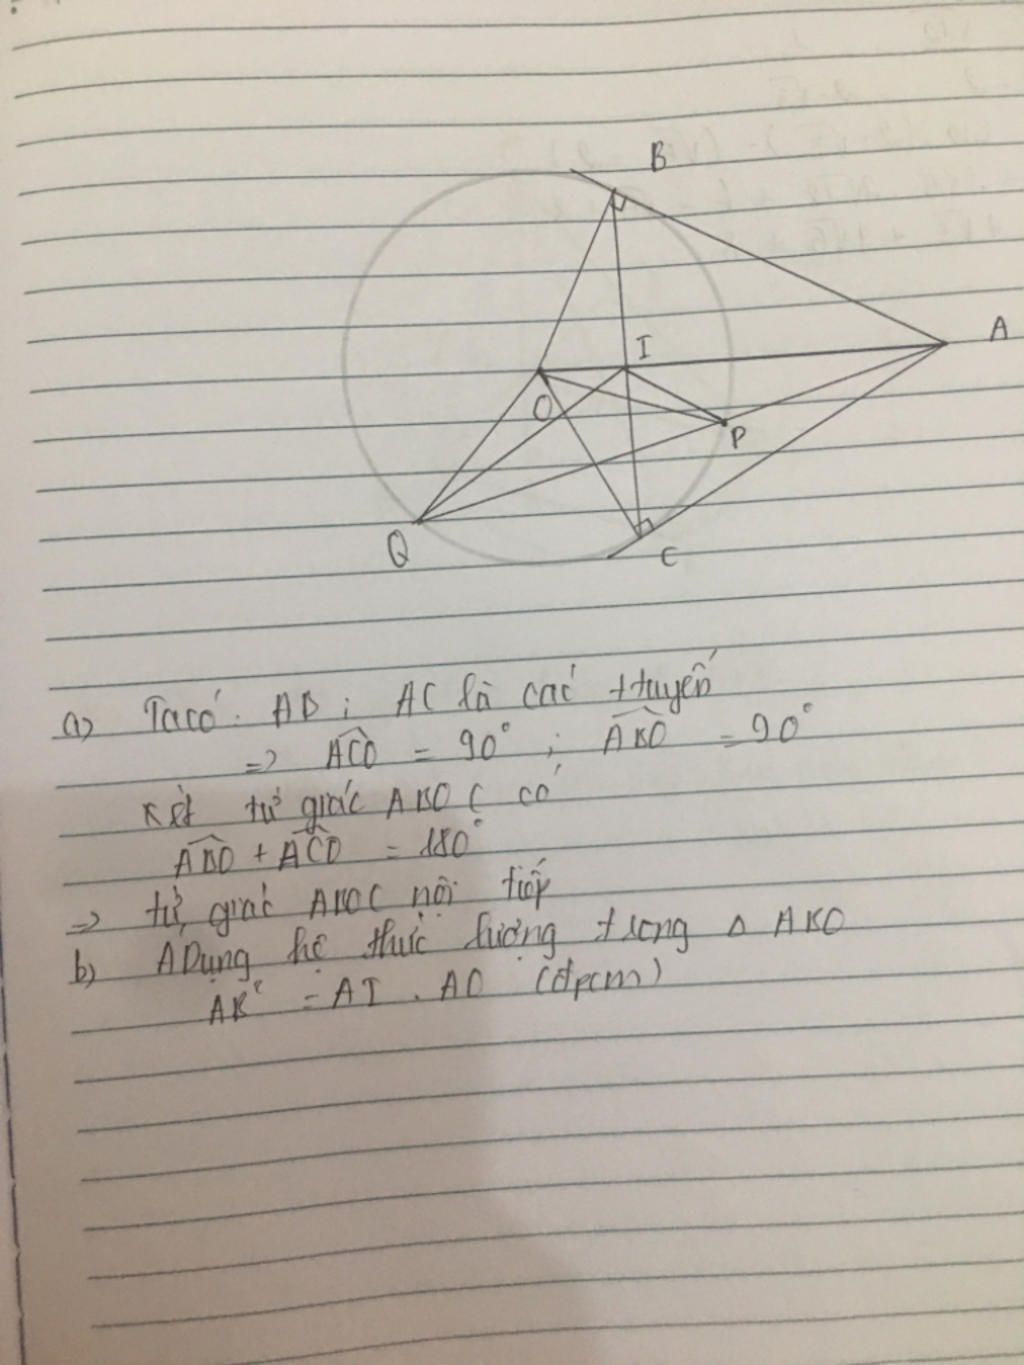 B
A
I
O
P
Q
C
a) Ta có: AB; AC là các ttuyến
=> ACO = 90° ; ABO = 90°
Xét tứ giác ABOC có
ABO + ACO = 180°
=> tứ giác ABOC nội tiếp
b) ADụng hệ thức lượng trong Δ ABO
AB² = AI . AO (đpcm)